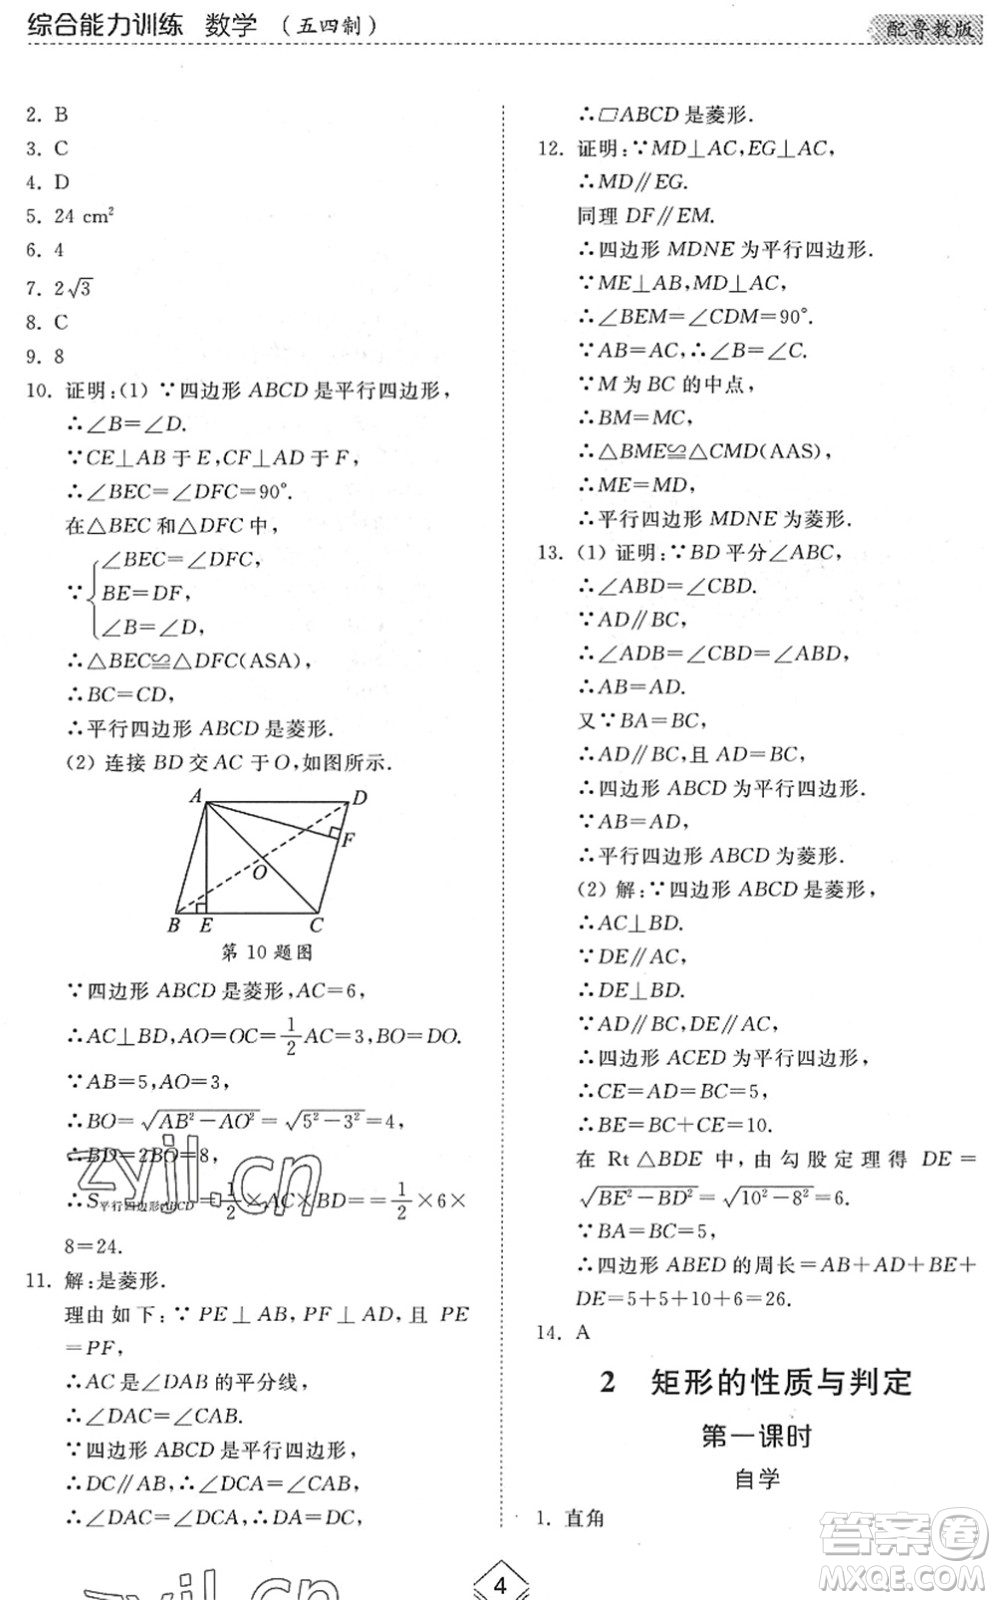 综合能力训练 数学 (五四制)
配鲁教版
2. B
3. C
4. D
5. 24 cm²
6. 4
7. 2√3
8. C
9. 8
10. 证明:(1) ∵四边形 ABCD 是平行四边形,
∴∠B=∠D.
∵CE⊥AB 于 E,CF⊥AD 于 F,
∴∠BEC=∠DFC=90°.
在△BEC 和△DFC 中,
∠BEC=∠DFC,
∵{ BE=DF,
∠B=∠D,
∴△BEC≌△DFC(ASA),
∴BC=CD,
∴平行四边形 ABCD 是菱形.
(2) 连接 BD 交 AC 于 O,如图所示.
A D
F
O
B E C
第 10 题图
∵四边形 ABCD 是菱形,AC=6,
∴AC⊥BD,AO=OC=1/2 AC=3,BO=DO.
∵AB=5,AO=3,
∴BO=√(AB²-AO²)=√(5²-3²)=4,
∴BD=2BO=8,
∴S平行四边形ABCD=1/2×AC×BD==1/2×6×
8=24.
11. 解:是菱形.
理由如下:∵PE⊥AB,PF⊥AD,且 PE
=PF,
∴AC 是∠DAB 的平分线,
∴∠DAC=∠CAB.
∵四边形 ABCD 是平行四边形,
∴DC∥AB,∴∠DCA=∠CAB,
∴∠DAC=∠DCA,∴DA=DC,
∴▱ABCD 是菱形.
12. 证明:∵MD⊥AC,EG⊥AC,
∴MD∥EG.
同理 DF∥EM.
∴四边形 MDNE 为平行四边形.
∵ME⊥AB,MD⊥AC,
∴∠BEM=∠CDM=90°.
∵AB=AC,∴∠B=∠C.
∵M 为 BC 的中点,
∴BM=MC,
∴△BME≌△CMD(AAS),
∴ME=MD,
∴平行四边形 MDNE 为菱形.
13. (1) 证明:∵BD 平分∠ABC,
∴∠ABD=∠CBD.
∵AD∥BC,
∴∠ADB=∠CBD=∠ABD,
∴AB=AD.
又∵BA=BC,
∴AD∥BC,且 AD=BC,
∴四边形 ABCD 为平行四边形.
∵AB=AD,
∴平行四边形 ABCD 为菱形.
(2) 解:∵四边形 ABCD 是菱形,
∴AC⊥BD.
∵DE∥AC,
∴DE⊥BD.
∵AD∥BC,DE∥AC,
∴四边形 ACED 为平行四边形,
∴CE=AD=BC=5,
∴BE=BC+CE=10.
在 Rt△BDE 中,由勾股定理得 DE=
√(BE²-BD²)=√(10²-8²)=6.
∵BA=BC=5,
∴四边形 ABED 的周长=AB+AD+BE+
DE=5+5+10+6=26.
14. A
2 矩形的性质与判定
第一课时
自学
1. 直角
4
zyjl.cn
zyjl.cn
答案圈
MXQE.COM